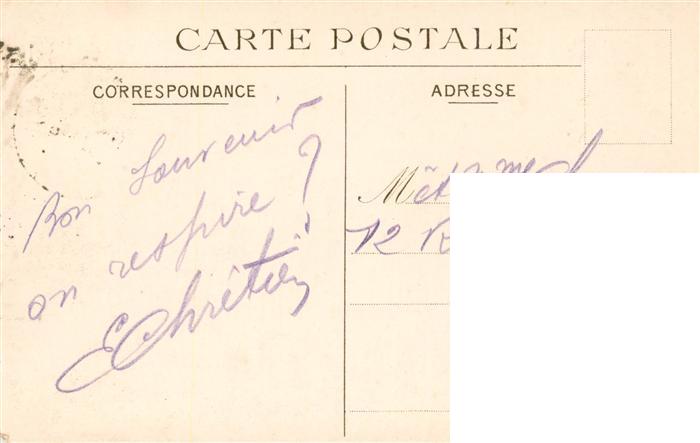 CARTE POSTALE
CORRESPONDANCE
ADRESSE
Bon Souvenir
on respire ?
EChrétien
M et Me
12 R